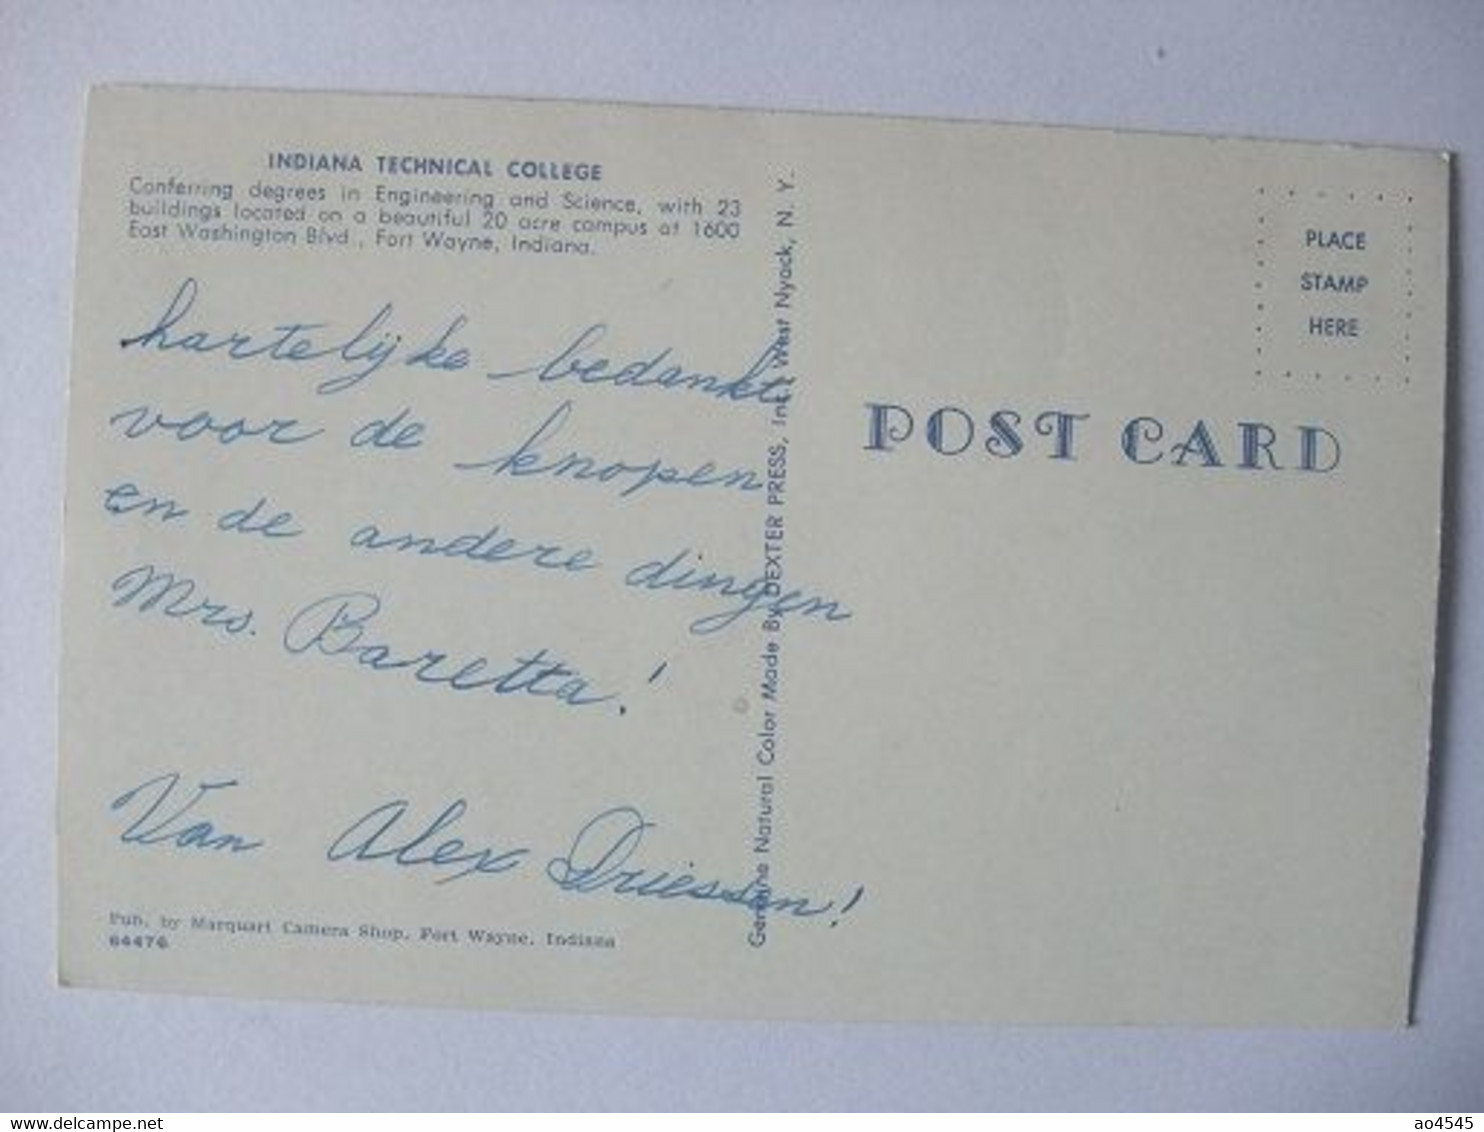 INDIANA TECHNICAL COLLEGE
Conferring degrees in Engineering and Science, with 23
buildings located on a beautiful 20 acre campus at 1600
East Washington Blvd., Fort Wayne, Indiana.
hartelijke bedankt
voor de knopen
en de andere dingen
Mrs. Baretta!
Van Alex Driessen!
Pub. by Marquart Camera Shop, Fort Wayne, Indiana
64476
Genuine Natural Color Made By DEXTER PRESS, Inc., West Nyack, N. Y.
PLACE
STAMP
HERE
POST CARD
delcampe.net
ao4545